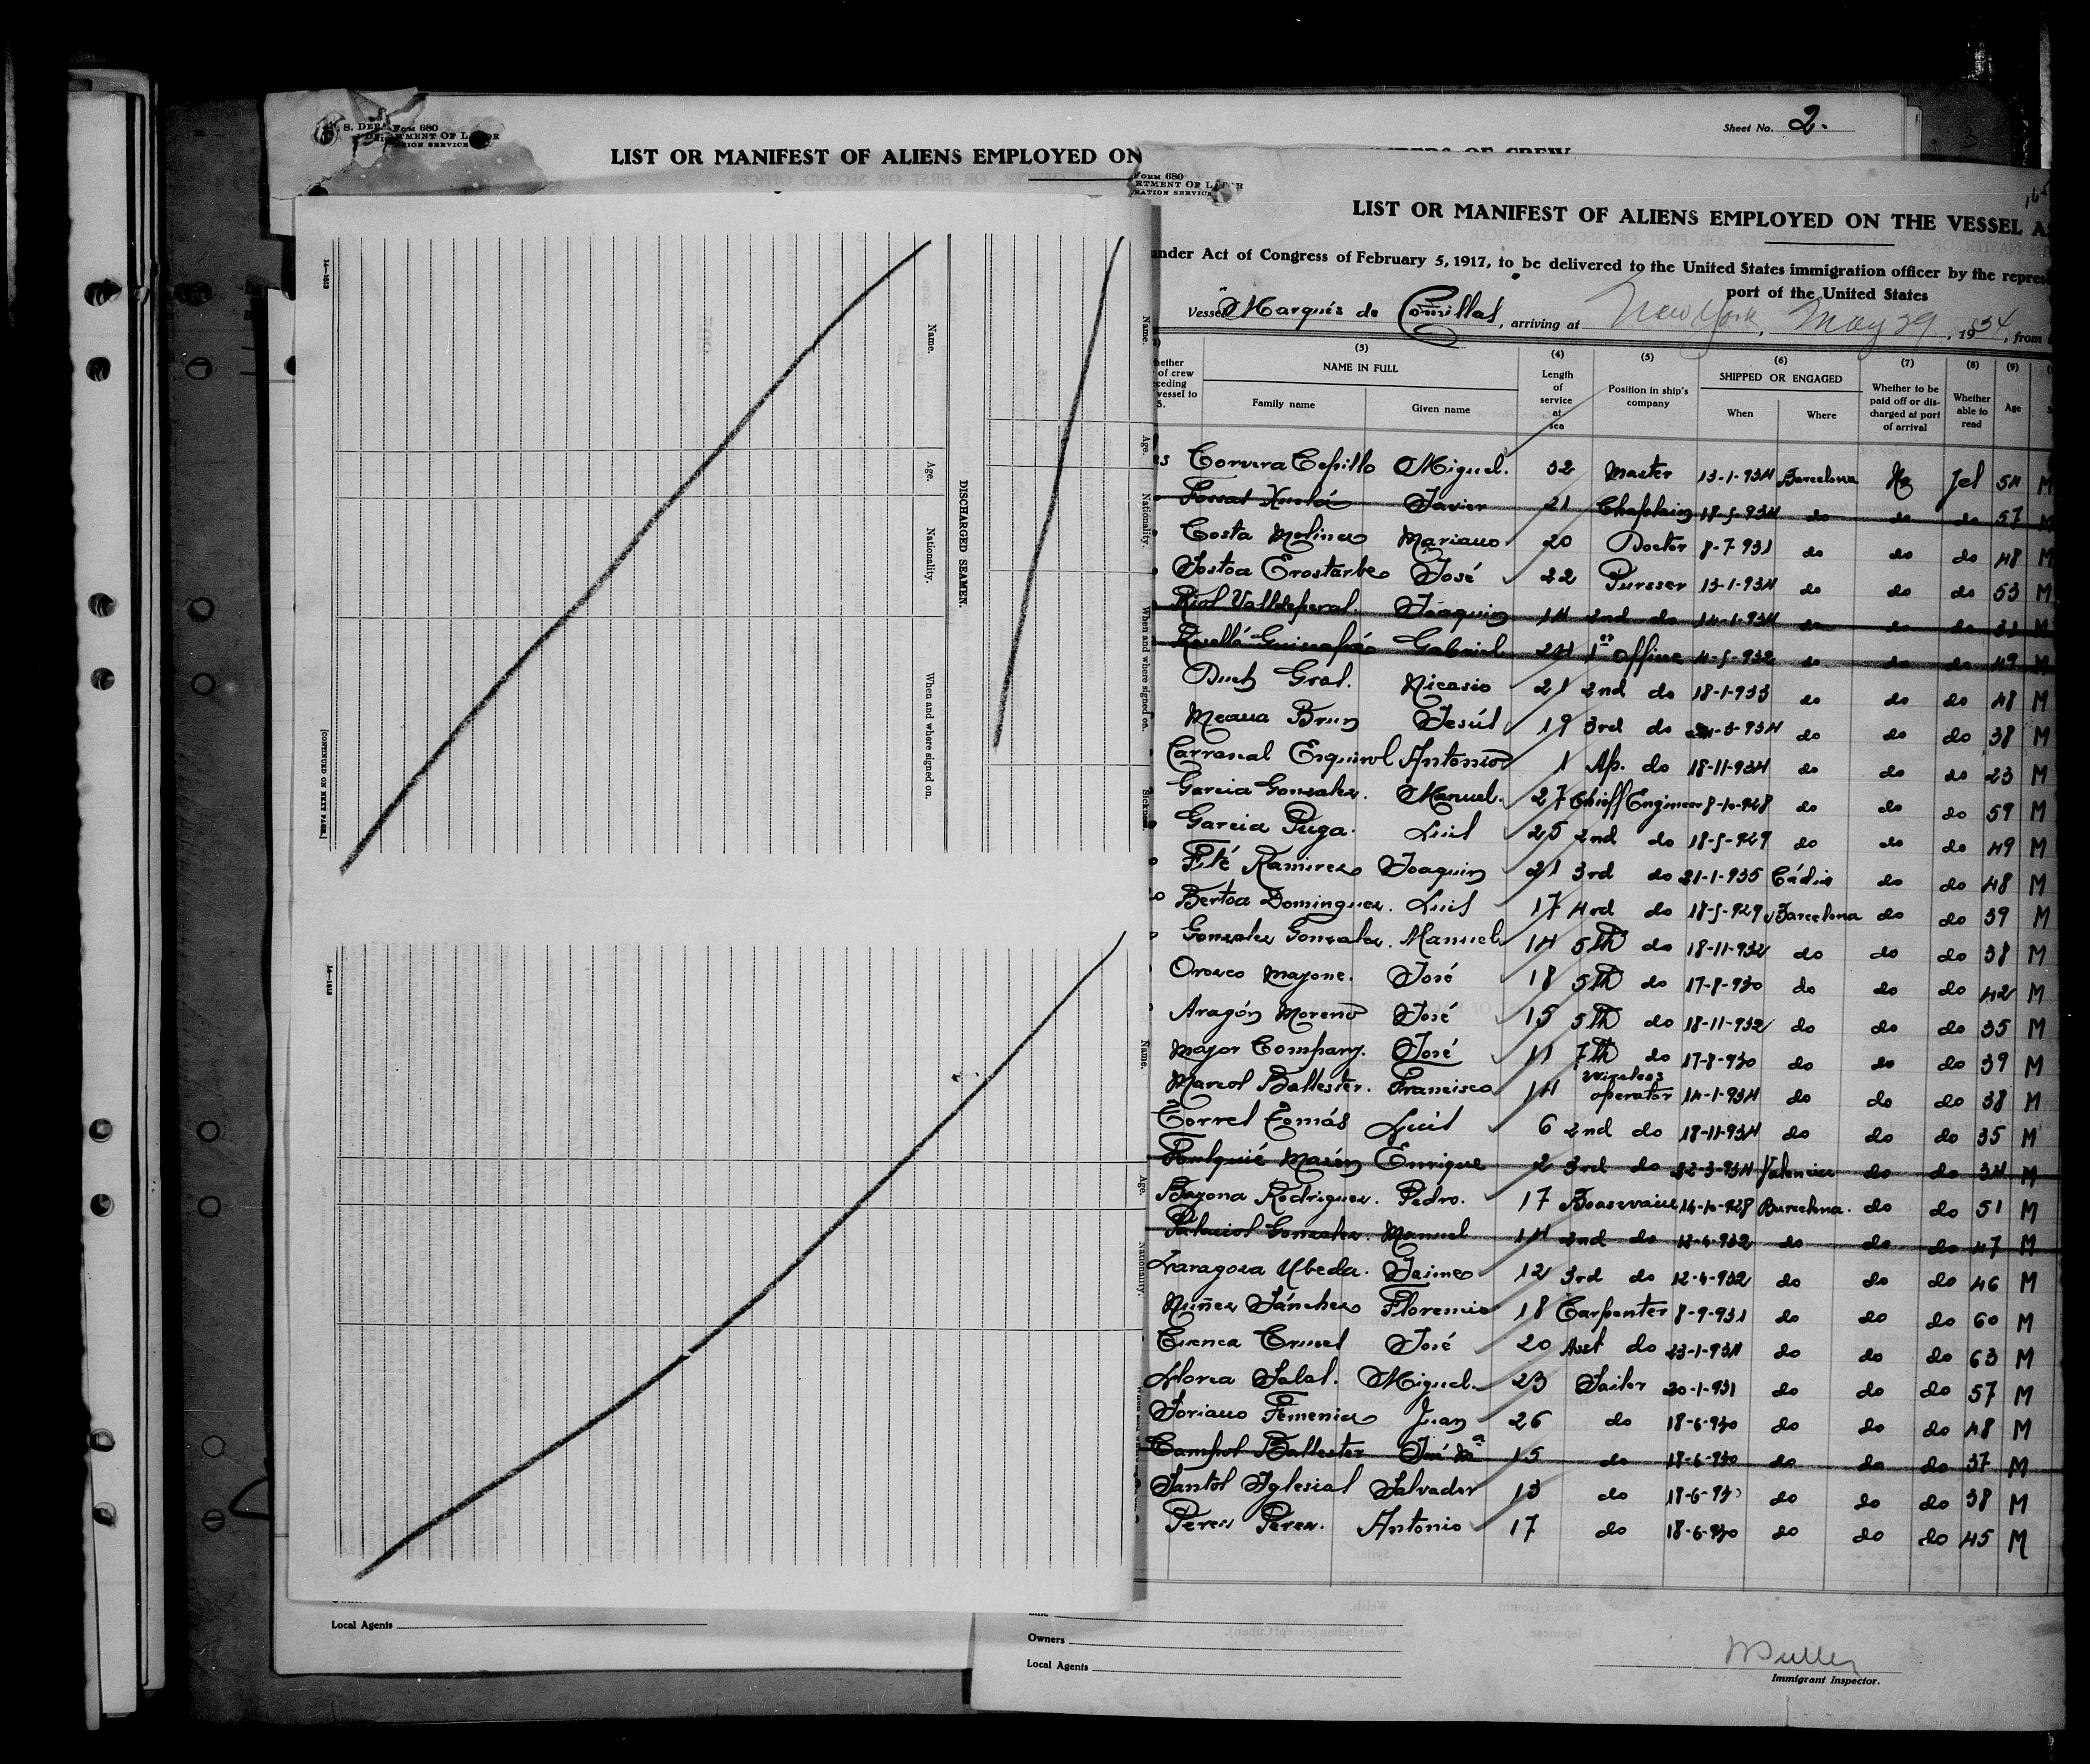 Form 680
Sheet No. 2.
LIST OR MANIFEST OF ALIENS EMPLOYED ON
Name.
Age.
Nationality.
When and where signed on.
DISCHARGED SEAMEN.
[CONTINUED ON NEXT PAGE.]
Name.
Age.
Nationality.
When and where signed on.
Sickness
Name.
Age.
Nationality.
Local Agents
Form 680
LIST OR MANIFEST OF ALIENS EMPLOYED ON THE VESSEL A
under Act of Congress of February 5, 1917, to be delivered to the United States immigration officer by the repres
port of the United States
Vessel Marqués de Comillas, arriving at New York, May 29, 1934, from
(3) (4) (5) (6) (7) (8) (9)
NAME IN FULL
Family name Given name
Length of service at sea
Position in ship's company
SHIPPED OR ENGAGED
When Where
Whether to be paid off or discharged at port of arrival
Whether able to read
Age
Corvera Cepillo Miguel. 32 Master 13-1-934 Barcelona No Yes 54 M
Javier 21 Chaplain 18-5-934 do do do 57 M
Costa Molinea Mariano 20 Doctor 8-7-931 do do do 48 M
Sostoa Erostarbe José 22 Pureser 13-1-934 do do do 53 M
Riol Valldeperal. Joaquin 14 2nd do 14-1-934 do do do 31 M
Gabriel 24 1er Office 4-5-932 do do do 49 M
Duch Gral. Nicasio 21 2nd do 18-1-933 do do do 48 M
Meana Brun Jesús 19 3rd do do do do 38 M
Carrascal Esquivol Antonio 1 Ap. do 18-11-934 do do do 23 M
Garcia Gonzalez. Manuel. 27 Chieff Engineer 8-10-928 do do do 59 M
Garcia Puga. Luis 25 2nd do 18-5-929 do do do 49 M
Fité Ramirez Joaquin 21 3rd do 21-1-935 Cádiz do do 48 M
Bertoa Dominguez. Luis 17 4rd do 18-5-929 Barcelona do do 39 M
Gonzalez Gonzalez. Manuel 14 5th do 18-11-932 do do do 38 M
Orozco Mayone. José 18 5th do 17-8-930 do do do 42 M
Aragón Moreno José 15 5th do 18-11-932 do do do 35 M
Mayor Company. José 11 7th do 17-8-930 do do do 39 M
Marcos Ballester. Francisco 14 Wireless operator 14-1-934 do do do 38 M
Torres Tomás Luis 6 2nd do 18-11-934 do do do 35 M
Enrique 2 3rd do 22-3-934 Valencia do do 34 M
Bayona Rodriguez. Pedro. 17 14-10-928 Barcelona. do do 51 M
Palacios Gonzalez. Manuel 14 2nd do 12-4-932 do do do 47 M
Zaragoza Ubeda. Jaime 12 3rd do 12-4-932 do do do 46 M
Nuñez Sánchez Florencio 18 Carpenter 8-9-931 do do do 60 M
Cuenca José 20 Asst do 23-1-934 do do do 63 M
Llorca Miguel. 23 Sailor 20-1-931 do do do 57 M
Soriano Femenia Juan 26 do 18-6-930 do do do 48 M
Campos Ballester José Ma 15 do 18-6-930 do do do 37 M
Santos Iglesias Salvador 13 do 18-6-930 do do do 38 M
Perez Perez. Antonio 17 do 18-6-930 do do do 45 M
Owners
Local Agents
Immigrant Inspector.